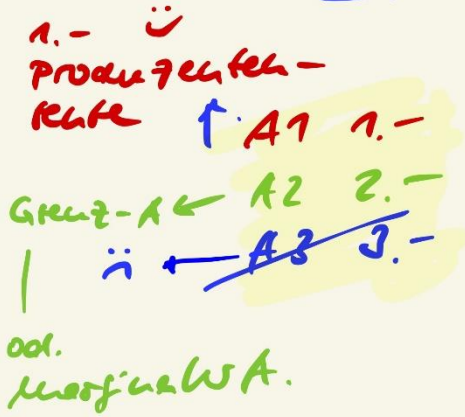 1.-
Produzenten-
rente
A1 1.-
Grenz-A ← A2 2.-
A3 3.-
od.
marginaler A.